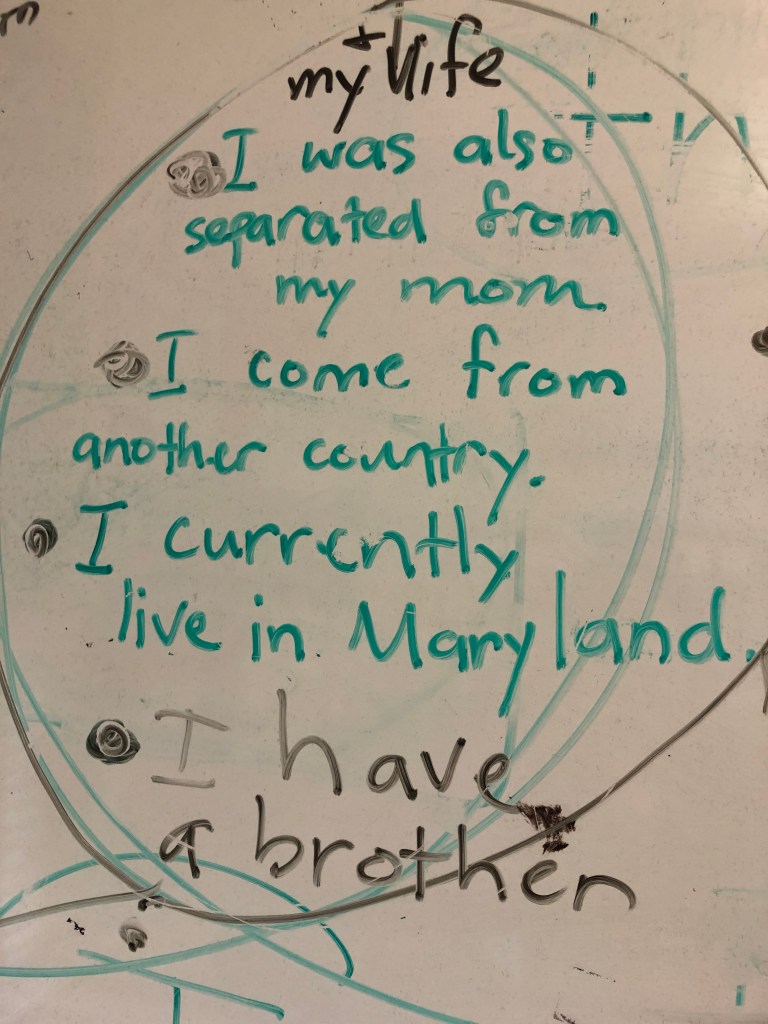 my life
I was also
separated from
my mom.
I come from
another country.
I currently
live in Maryland.
I have
a brother